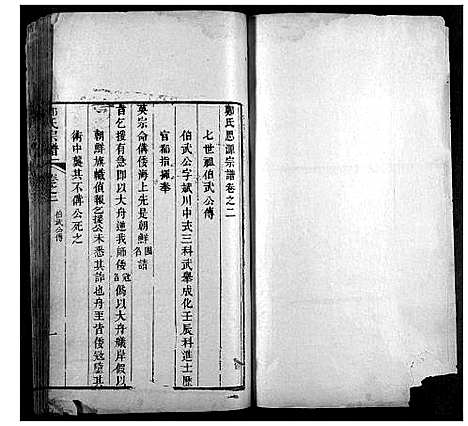 鄭氏思源宗譜卷之二
七世祖伯武公傳
伯武公字斌川中式三科武舉成化壬辰科進士歷
官指揮奉
英宗命備倭海上先是朝鮮國請
昔乞援有急即以大舟逆我師倭冦名偽以大舟艤岸假以
朝鮮旗幟偵報乞援公未悉其詐也舟至皆倭寇墮其
術中襲其不備公死之
宗譜
卷二
伯武公傳
一